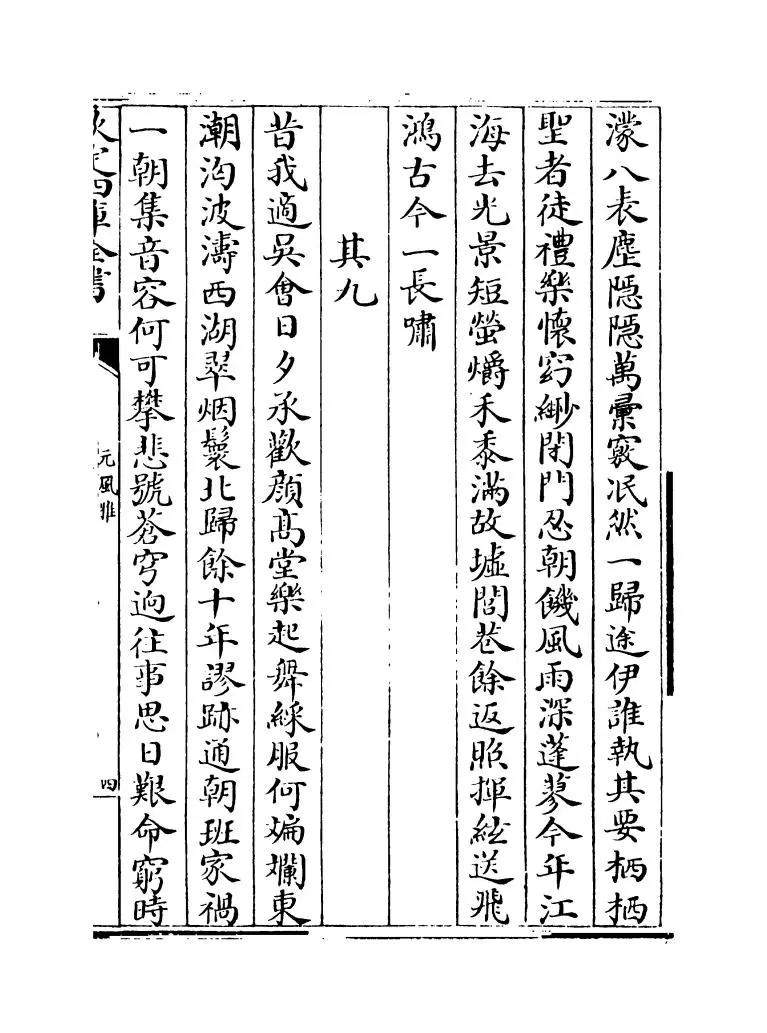 濛八表塵隠隠萬彚竅冺然一歸途伊誰執其要栖栖
聖者徒禮樂懐窈緲閉門忍朝饑風雨深蓬蓼今年江
海去光景短螢爝禾黍滿故墟閭巷餘返照揮絃送飛
鴻古今一長嘯
其九
昔我適吳會日夕承歡顔髙堂樂起舞綵服何斒斕東
潮泃波濤西湖翠烟鬟北歸餘十年謬跡通朝班家禍
一朝集音容何可攀悲號蒼穹逈往事思日艱命窮時
欽定四庫全書
元風雅
四